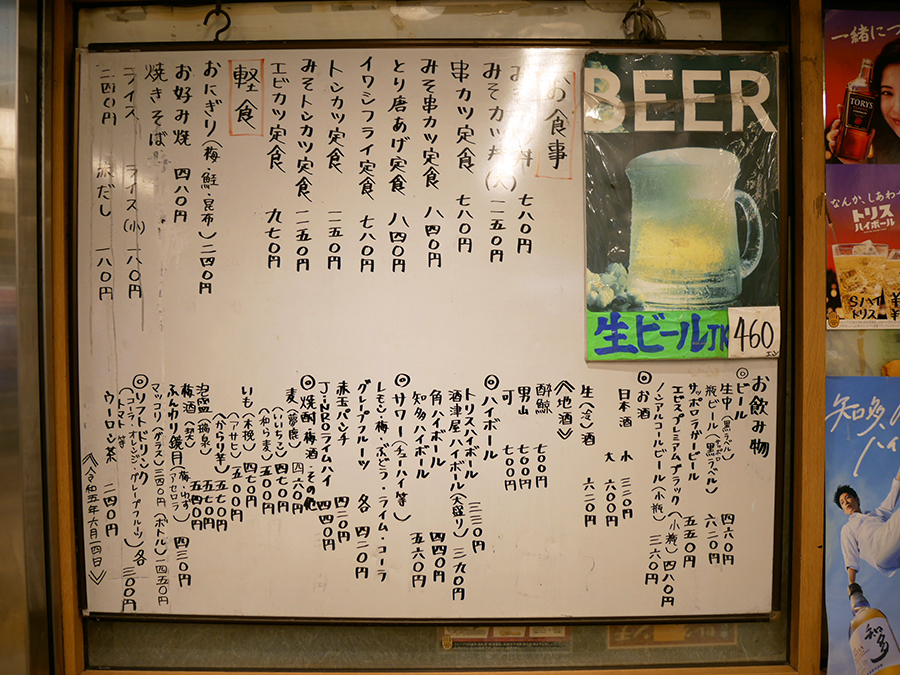 お食事
みそカツ丼 七八〇円
みそカツ丼(大) 一一五〇円
串カツ定食 七八〇円
みそ串カツ定食 八四〇円
とり唐あげ定食 八四〇円
イワシフライ定食 七八〇円
トンカツ定食 一一五〇円
みそトンカツ定食 一一五〇円
エビカツ定食 九七〇円
軽食
おにぎり(梅・鮭・昆布) 二四〇円
お好み焼 四八〇円
焼きそば
ライス ライス(小) 一八〇円
二四〇円 だし 一八〇円
BEER
生ビールJK 460エン
お飲み物
◎ビール
生中(黒ラベル) 四六〇円
瓶ビール(サッポロ黒ラベル) 六二〇円
サッポロラガービール 五五〇円
エビスプレミアムブラック(小瓶) 四八〇円
ノンアルコールビール(小瓶) 三六〇円
◎お酒
日本酒 小 三二〇円
大 六〇〇円
生(冷)酒 六二〇円
《地酒》
酔鯨 七〇〇円
男山 七〇〇円
可 七〇〇円
◎ハイボール
トリスハイボール 三三〇円
酒津屋ハイボール(大盛り) 三九〇円
角ハイボール 四四〇円
知多ハイボール 五六〇円
◎サワー(チューハイ等)
レモン・梅・ぶどう・ライム・コーラ
グレープフルーツ 各 四二〇円
赤玉パンチ 四二〇円
JINROライムハイ 四四〇円
◎焼酎・梅酒・その他
麦(夢鹿) 四六〇円
(いいちこ) 四七〇円
(和ら麦) 五〇〇円
いも(木挽) 四七〇円
(アサヒ) 五一〇円
(からり芋) 五七〇円
泡盛(瑞泉) 五七〇円
梅酒 五四〇円
ふんわり鏡月(梅・ゆず アセロラ) 四三〇円
マッコリ(グラス)三四〇円(ボトル)一四五〇円
◎ソフトドリンク
(コーラ・オレンジ・グレープフルーツ トマト等) 各 三〇〇円
ウーロン茶 二四〇円
《令和五年六月一四日》
一緒に
TORYS
なんか、しあわ
トリス
ハイボール
ハイ
トリス
知多の
ハイ
知多